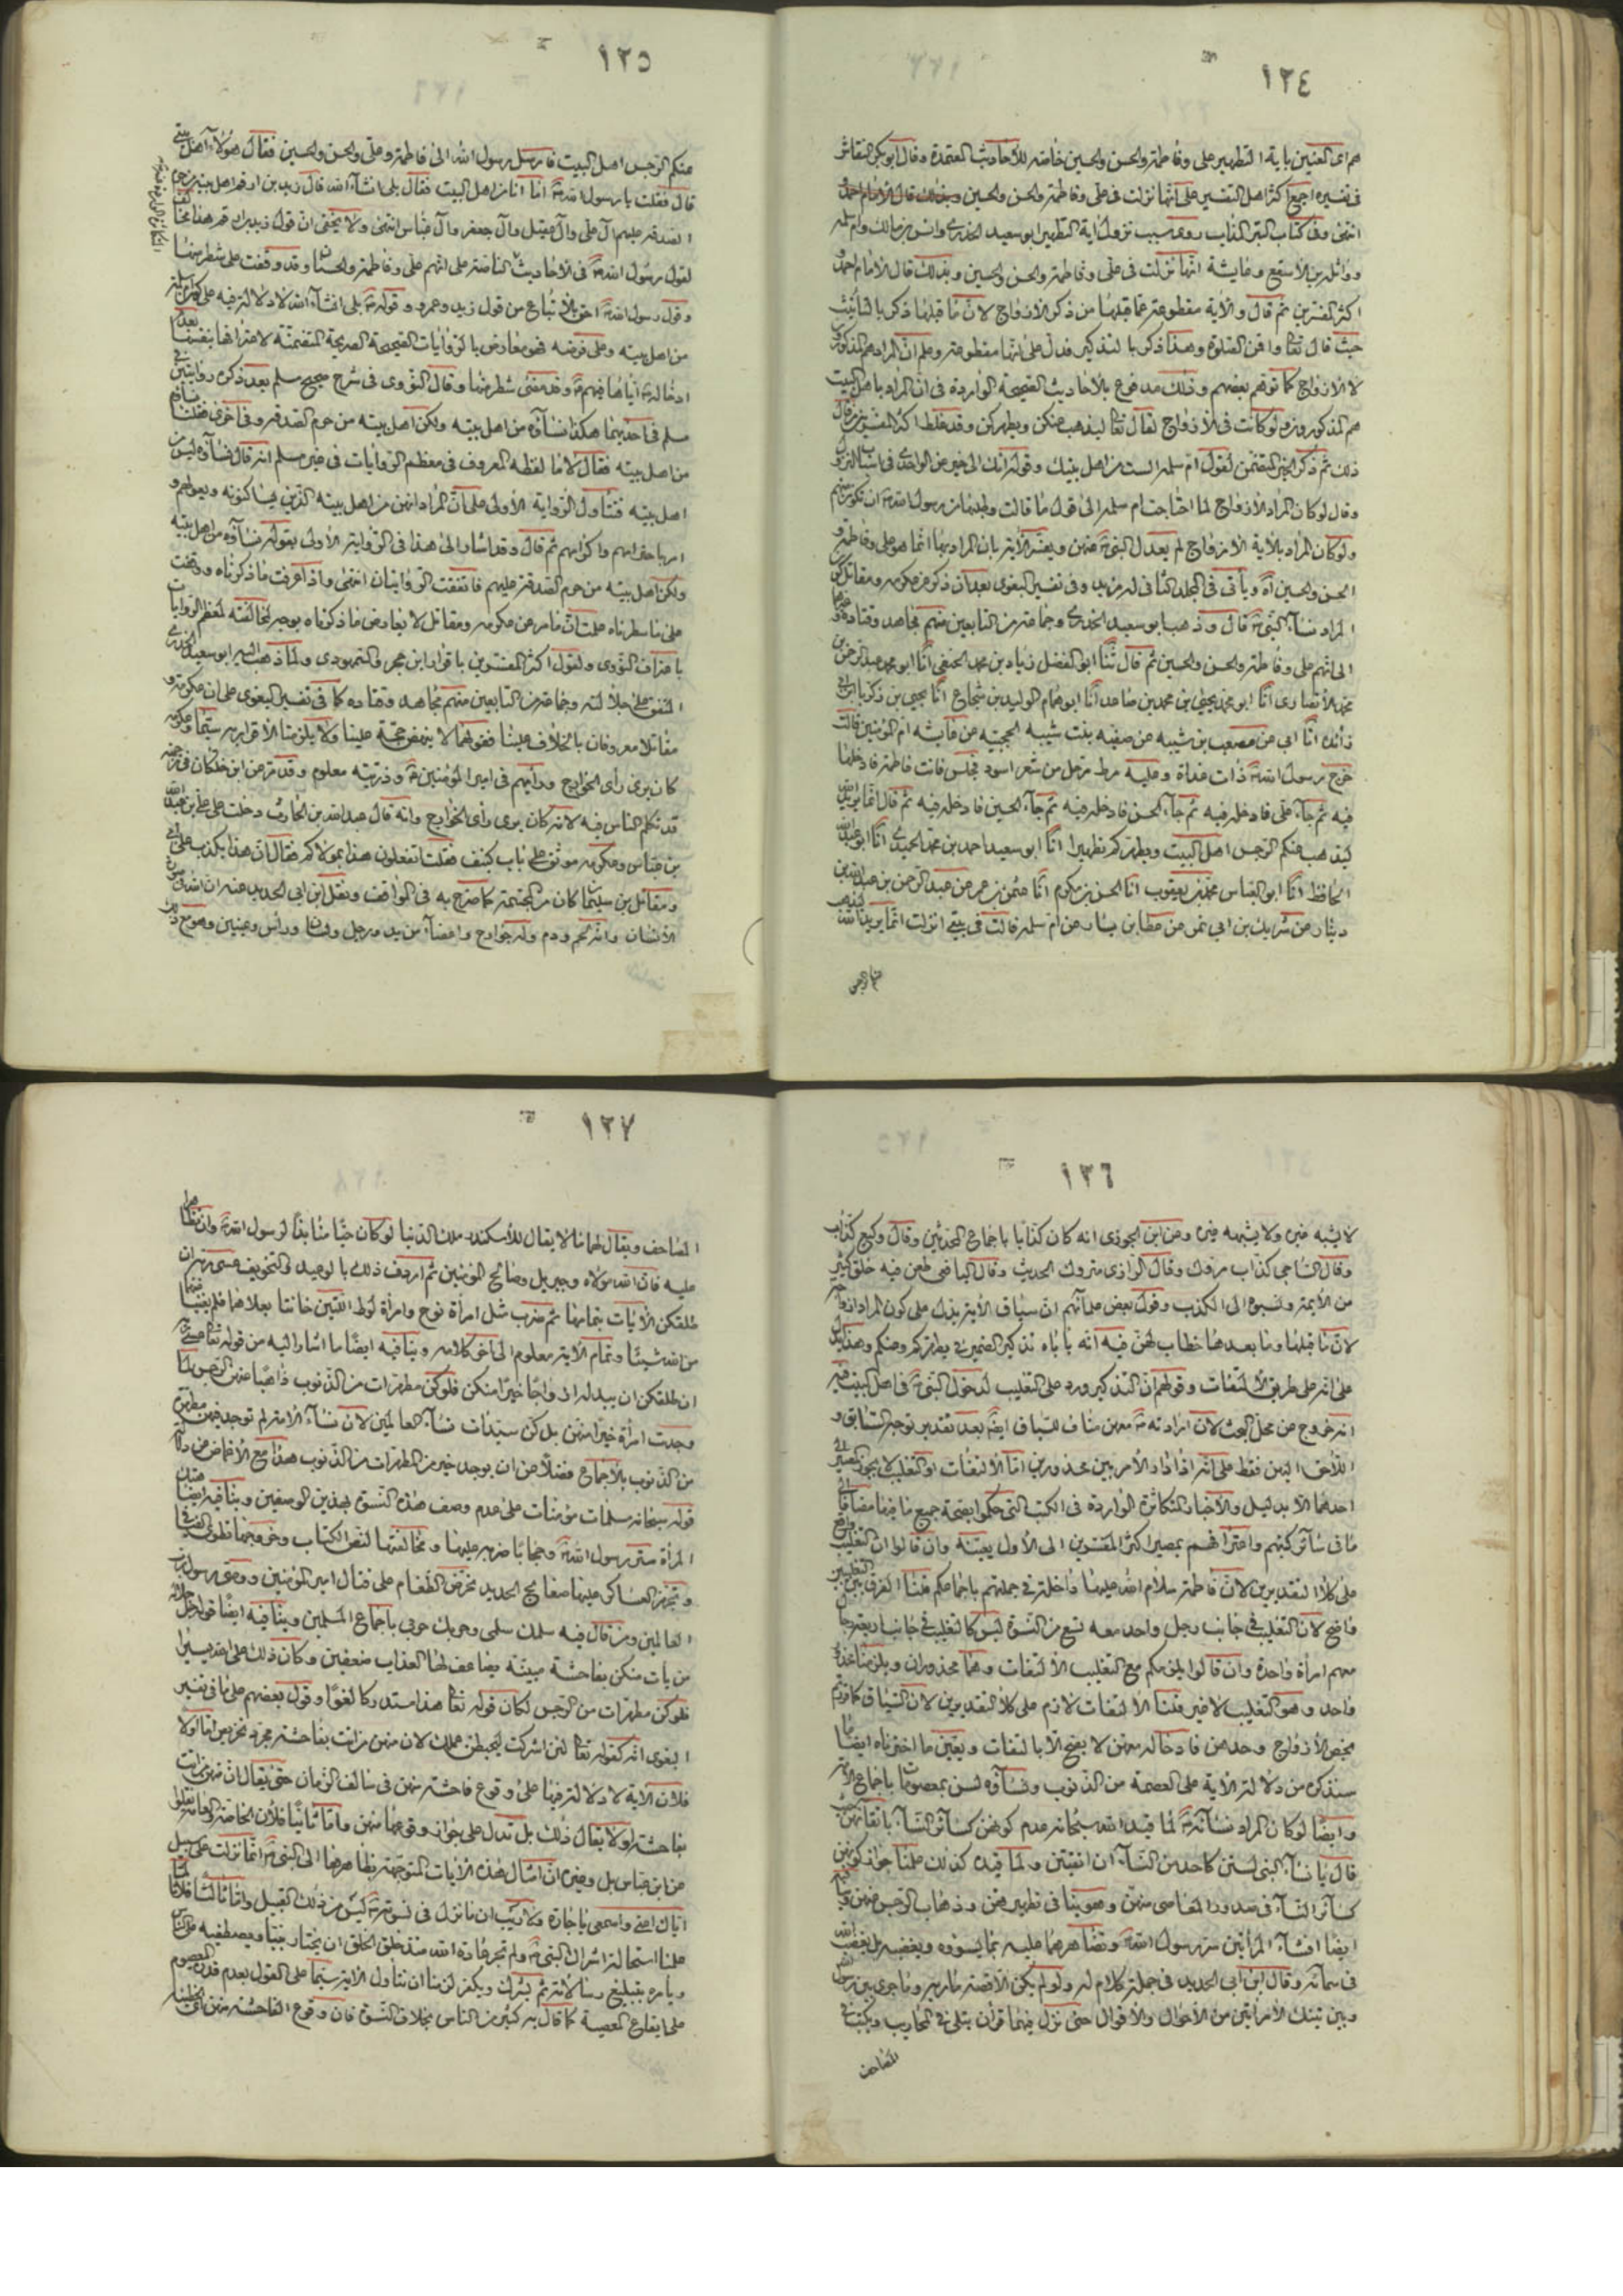 ١٢٤
هم اى المعنيين باية التطهير على وفاطمة والحسن والحسين خاصة للأحاديث المعتمدة وقال ابو بكر النقاش
فى تفسيره اجمع اكثر اهل التفسير على انها نزلت فى على وفاطمة والحسن والحسين وبذلك قال الامام احمد
انتهى وفى كتاب روى سبب نزول اية التطهير ابو سعيد الخدرى وانس بن مالك وام سلمة
وواثلة بن الأسقع وعايشة انها نزلت فى على وفاطمة والحسن والحسين وبذلك قال الامام احمد و
اكثر المفسرين ثم قال والأية مقطوعة عما قبلها من ذكر الأزواج لان ما قبلها ذكر بالتأنيث
حيث قال تعا واقمن الصلوة وهذا ذكر بالتذكير فدل على انها مقطوعة وعلم ان المراد هم المذكورون
لا الازواج كما توهم بعضهم وذلك مدفوع بالأحاديث الصحيحة الواردة فى ان المراد باهل البيت
هم المذكورون ولو كانت فى الأزواج لقال تعا ليذهب عنكن ويطهركن وقد غلط اكثر المفسرين من قال
ذلك ثم ذكر الخبر المتضمن لقول ام سلمة الست من اهل بيتك وقوله انك الى خير عن الواحدى فى اسباب النزول
وقال لو كان المراد الأزواج لما احتاجت ام سلمة الى قول ما قالت وطلبها من رسول الله ان تكون منهم
ولو كان المراد بالأية الازواج لم يعدل النبى عنهن ويفسر الأية بان المراد بها انما هو على وفاطمة و
الحسن والحسين اه ويأتى فى المجلد الثانى له مزيد وفى تفسير البغوى بعد ان ذكر عن عكرمة ومقاتل كون
المراد نساء النبى قال وذهب ابو سعيد الخدرى وجماعة من التابعين منهم مجاهد وقتادة وغيرهما
الى انهم على وفاطمة والحسن والحسين ثم قال ثنا ابو الفضل زياد بن محمد الحنفى انا ابو محمد عبد الرحمن بن
محمد الأنصارى انا ابو محمد يحيى بن محمد بن صاعد انا ابو همام الوليد بن شجاع انا يحيى بن زكريا بن ابى
زائدة انا ابى عن مصعب بن شيبه عن صفيه بنت شيبه الحجبيه عن عايشه ام المؤمنين قالت
خرج رسول الله ذات غداة وعليه مرط مرحل من شعر اسود فجلس فاتت فاطمة فادخلها
فيه ثم جآء على فادخله فيه ثم جآء الحسن فادخله فيه ثم جآء الحسين فادخله فيه ثم قال انما يريد الله
ليذهب عنكم الرجس اهل البيت ويطهركم تطهيرا انا ابو سعيد احمد بن محمد الحميدى انا ابو عبد الله
الحافظ انا ابو العباس محمد بن يعقوب انا الحسن بن مكرم انا عثمن بن عمر عن عبد الرحمن بن عبد الله بن
دينار عن شريك بن ابى نمر عن عطا بن يسار عن ام سلمة قالت فى بيتى انزلت انما يريد الله ليذهب
عنكم الرجس
١٢٥
عنكم الرجس اهل البيت فارسل رسول الله الى فاطمة وعلى والحسن والحسين فقال هؤلاء اهل بيتى
قال فقلت يا رسول الله انا انا من اهل البيت فقال بلى انشآء الله قال زيد بن ارقم اهل بيته من حرم
الصدقة عليهم آل على وآل عقيل وآل جعفر وآل عباس انتهى ولا يخفى ان قول زيد بن ارقم هنا مخالف
لقول رسول الله فى الاحاديث الناصة على انهم على وفاطمة والحسنان وقد وقفت على شطر منها
وقول رسول الله احق بالأتباع من قول زيد وعمرو وقوله بلى انشآء الله لا دلالة فيه على كون ام سلمة
من اهل بيته وعلى فرضه فهو معارض بالروايات الصحيحة الصريحة المتضمنة لاخراجها بنفسها بعد
ادخاله اياها فيهم وقد مضى شطر منها وقال النووى فى شرح صحيح مسلم بعد ذكره روايتين فى
مسلم فى احديهما هكذا نسآؤه من اهل بيته ولكن اهل بيته من حرم الصدقة وفى اخرى فقلنا نساؤه
من اهل بيته فقال لا ما لفظه المعروف فى معظم الروايات فى غير مسلم انه قال نسآؤه ليس من
اهل بيته فتتأول الرواية الأولى على ان المراد انهن من اهل بيته الذين يساكنونه ويعولهم و
امر باحترامهم واكرامهم ثم قال وقد اشار الى هذا فى الرواية الأولى بقوله نسآؤه من اهل بيته
ولكن اهل بيته من حرم الصدقة عليهم فاتفقت الروايتان انتهى واذا عرفت ما ذكرناه ووقفت
على ما سطرناه علمت ان ما مر عن عكرمه ومقاتل لا يعارض ما ذكرناه بوجه لمخالفته لمعظم الروايات
باعتراف النووى ولقول اكثر المفسرين باقرار ابن حجر والسمهودى ولما ذهب اليه ابو سعيد الخدرى
المتفق على جلالته وجماعة من التابعين منهم مجاهد وقتاده كما فى تفسير البغوى على ان عكرمة و
مقاتلا معروفان بالخلاف علينا فقولهما لا ينهض حجة علينا ولا يلزمنا الأقرار به سيما عكرمه
كان يرى رأى الخوارج ورأيهم فى امير المؤمنين وذريته معلوم وقد مر عن ابن خلكان فى ترجمته
قد تكلم الناس فيه لانه كان يرى رأى الخوارج وانه قال عبد الله بن الحارث دخلت على على بن عبد الله
بن عباس وعكرمه موثق على باب كنيف فقلت اتفعلون هذا بمولاكم فقال ان هذا يكذب على ابى
ومقاتل بن سليمان كان من المجسمة كما صرح به فى المواقف ونقل ابن ابى الحديد عنه ان الله على صورة
الأنسان وانه لحم ودم وله جوارح واعضآء من يد ورجل ولسان ورأس وعينين وهو مع ذلك
١٢٦
لا يشبه غيره ولا يشبهه غيره وعن ابن الجوزى انه كان كذابا باجماع المحدثين وقال وكيع كذاب
وقال الساجى كذاب متروك وقال الرازى متروك الحديث وقال اليافعى طعن فيه خلق كثير
من الأيمة ونسبوه الى الكذب وقول بعض علمآئهم ان سياق الأية يدل على كون المراد ازواجه
لان ما قبلها وما بعدها خطاب لهن فيه انه ياباه تذكير الضمير فى يطهركم وعنكم وهذا يدل
على انه على طريق الألتفات وقولهم ان التذكير ورد على التغليب لدخول النبى فى اهل البيت فيه
انه خروج عن محل البحث لان ارادته معهن مناف للسياق ايضا بعد تقدير توجه السابق و
اللاحق اليهن فقط على انه اذا دار الأمر بين محذورين اما الالتفات او التغليب لا يجوز المصير الى
احدهما الا بدليل والأخبار المتكاثرة الواردة فى الكتب التى حكموا بصحة جميع ما فيها مضافا الى
ما فى سآئر كتبهم واعترافهم بمصير اكثر المفسرين الى الأول يعينه وان قالوا ان التغليب واقع
على كلا التقديرين لان فاطمة سلام الله عليها داخلة فى جملتهم باجماعكم قلنا الفرق بين التغليبين
واضح لان التغليب فى جانب رجل واحد معه تسع من النسوة ليس كالتغليب فى جانب اربعة رجال
معهم امرأة واحدة وان قالوا يلزمكم مع التغليب الالتفات وهما محذوران ويلزمنا محذور
واحد وهو التغليب لا غير قلنا الالتفات لازم على كلا التقديرين لان السياق كما عرفتم
يخص الأزواج وحدهن فادخاله معهن لا يصح الا بالتفات ويعين ما اخترناه ايضا ما
سنذكره من دلالة الأية على العصمة من الذنوب ونسآؤه لسن بمعصومات باجماع الأمة
وايضا لو كان المراد نسآئه لما قيد الله سبحانه عدم كونهن كسائر النسآء باتقائهن حيث
قال يا نسآء النبى لستن كاحد من النسآء ان اتقيتن ولما قيده كذلك علمنا جواز كونهن
كسائر النسآء فى صدور المعاصى منهن وهو ينافى تطهيرهن وذهاب الرجس عنهن وينافيه
ايضا افشآء المرأتين سر رسول الله وتظاهرهما عليه بما يسوؤه ويغضبه بل يغضب الله
فى سمائه وقال ابن ابى الحديد فى جملة كلام له ولو لم يكن الا قصة مارية وما جرى بين رسول الله
وبين تينك الأمرأتين من الأحوال والأقوال حتى نزل فيهما قرآن يتلى فى المحاريب ويكتب فى
المصاحف
١٢٧
المصاحف ويقال لهما ما لا يقال للأسكندر ملك الدنيا لو كان حيا منابذا لرسول الله وان تظاهرا
عليه فان الله مولاه وجبريل وصالح المؤمنين ثم اردف ذلك بالوعيد والتخويف عسى ربه ان
طلقكن الأيات بتمامها ثم ضرب مثل امرأة نوح وامرأة لوط اللتين خانتا بعلاهما فلم يغنيا عنهما
من الله شيئا وتمام الأية معلوم الى اخر كلامه وينافيه ايضا ما اشار اليه من قوله تعا عسى ربه
ان طلقكن ان يبدله ازواجا خيرا منكن فلو كن مطهرات من الذنوب ذاهبا عنهن الرجس لما
وجدت امرأة خيرا منهن بل كن سيدات نسآء العالمين لان نسآء الأمة لم توجد فيهن مطهرة
من الذنوب بالأجماع فضلا عن ان يوجد خير من المطهرات من الذنوب هذا مع الأغماض عن دلالة
قوله سبحانه مسلمات مؤمنات على عدم وصف هذه النسوة بهذين الوصفين وينافيه ايضا هتك
المرأة ستر رسول الله وحجابا ضربه عليها ومخالفتها لنص الكتاب وخروجها تطوى الفيافى
وتجهز العساكر عليها صفايح الحديد تحرض الطغام على قتال امير المؤمنين ووصى رسول رب
العالمين ومن قال فيه سلمك سلمى وحربك حربى باجماع المسلمين وينافيه ايضا قوله جل جلاله
من يأت منكن بفاحشة مبينة يضاعف لها العذاب ضعفين وكان ذلك على الله يسيرا
فلو كن مطهرات من الرجس لكان قوله تعا هذا مستدركا لغوا وقول بعضهم على ما فى تفسير
البغوى انه كقوله تعا لئن اشركت ليحبطن عملك لان منهن من اتت بفاحشة مجرد تخريص اما اولا
فلان الأية لا دلالة فيها على وقوع فاحشة منهن فى سالف الزمان حتى يقال ان منهن من اتت
بفاحشة او لا يقال ذلك بل تدل على جواز وقوعها منهن واما ثانيا فلأن الخاصة والعامة نقلوا
عن ابن عباس بل وغيره ان امثال هذه الأيات المتوجهة بظاهرها الى النبى انما نزلت على سبيل
اياك اعنى واسمعى يا جارة ولا ريب ان ما نزل فى نسوته ليس من ذلك القبيل واما ثالثا فلأنا لما
علمنا استحالة اشراك النبى ولم تجر عادة الله منذ خلق الخلق ان يختار نبيا ويصطفيه على الناس
ويأمره بتبليغ رسالاته ثم يشرك ويكفر لزمنا ان نتأول الأية سيما على القول بعدم قدرة المعصوم
على ايقاع المعصية كما قال به كثير من الناس بخلاف النسوة فان وقوع الفاحشة منهن